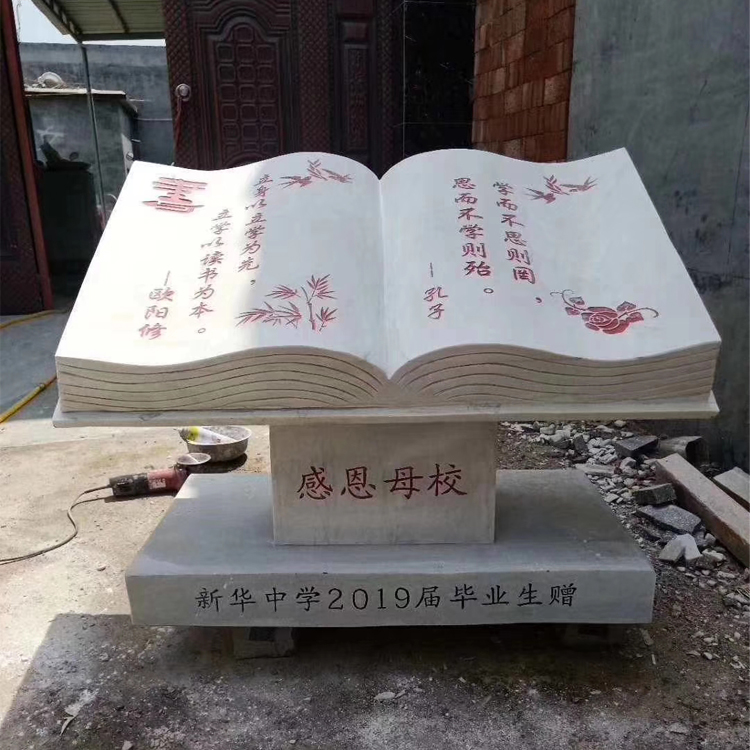 学而不思则罔，
思而不学则殆。
—孔子
立身以立学为先，
立学以读书为本。
—欧阳修
感恩母校
新华中学2019届毕业生赠